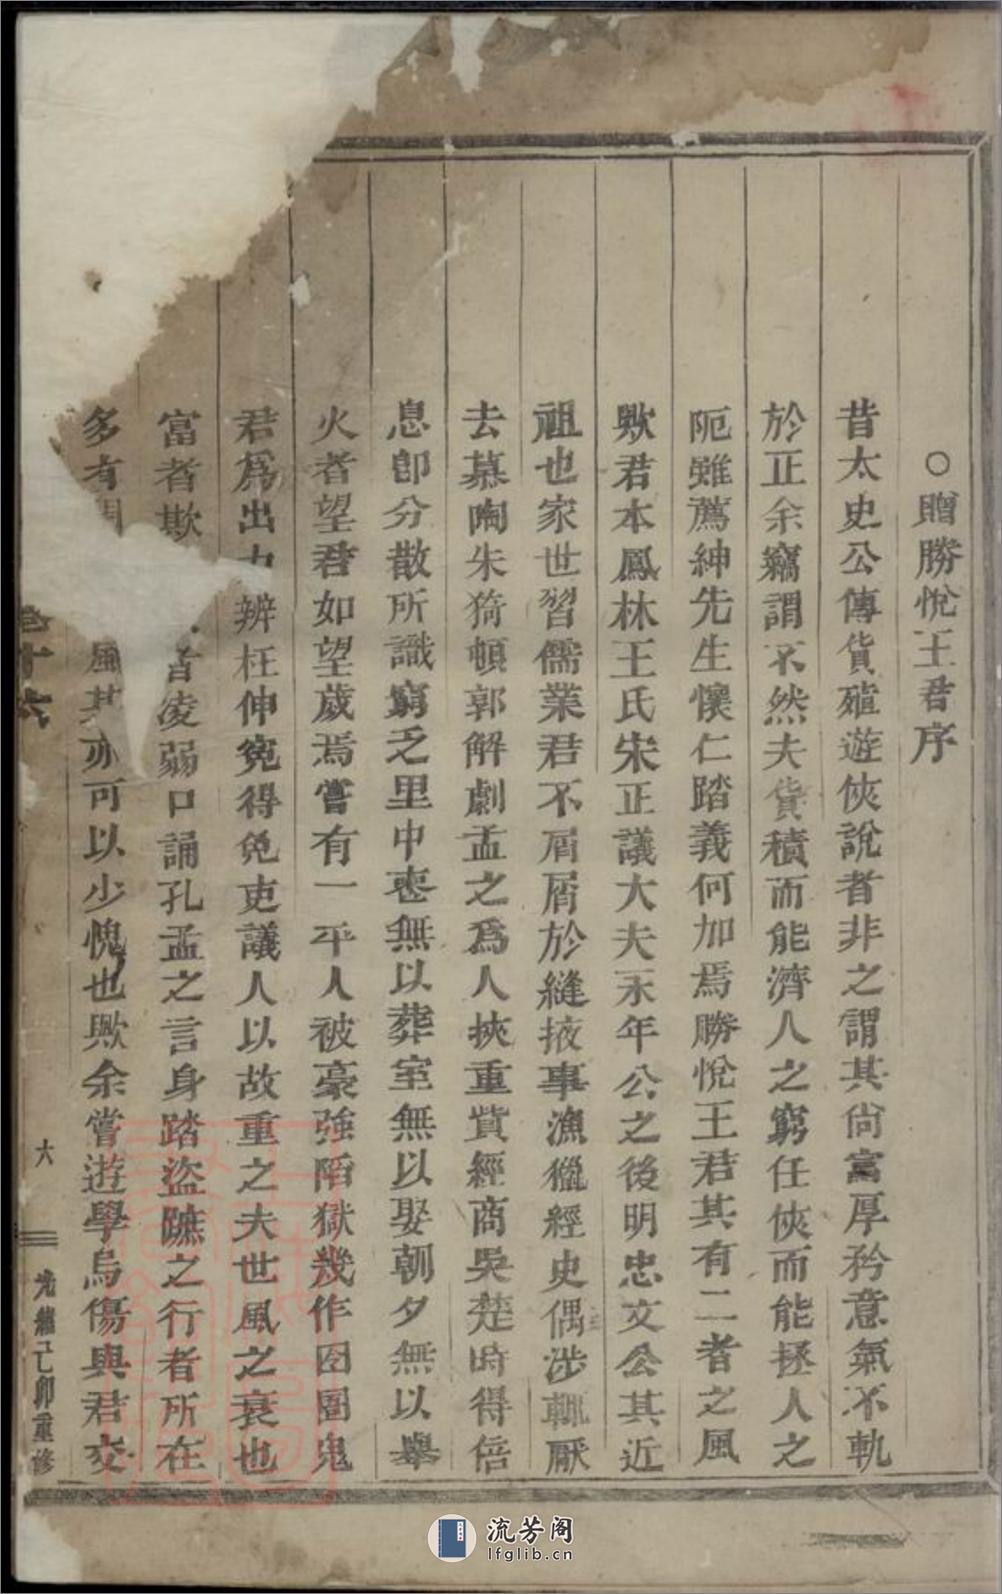 ○贈勝悅王君序
昔太史公傳貨殖遊俠說者非之謂其尙富厚矜意氣不軌
於正余竊謂不然夫貨積而能濟人之窮任俠而能拯人之
阨雖薦紳先生懷仁踏義何加焉勝悅王君其有二者之風
歟君本鳳林王氏宋正議大夫永年公之後明忠文公其近
祖也家世習儒業君不屑屑於縫掖事漁獵經史偶涉輒厭
去慕陶朱猗頓郭解劇孟之爲人挾重貲經商吳楚時得倍
息卽分散所識窮乏里中喪無以葬室無以娶朝夕無以舉
火者望君如望歲焉嘗有一平人被豪強陷獄幾作囹圄鬼
君爲出力辨枉伸寃得免吏議人以故重之夫世風之衰也
富者欺者凌弱口誦孔孟之言身踏盜蹠之行者所在
多有風其亦可以少愧也歟余嘗遊學烏傷與君交
卷十六
六
光緒己卯重修
流芳阁
lfglib.cn